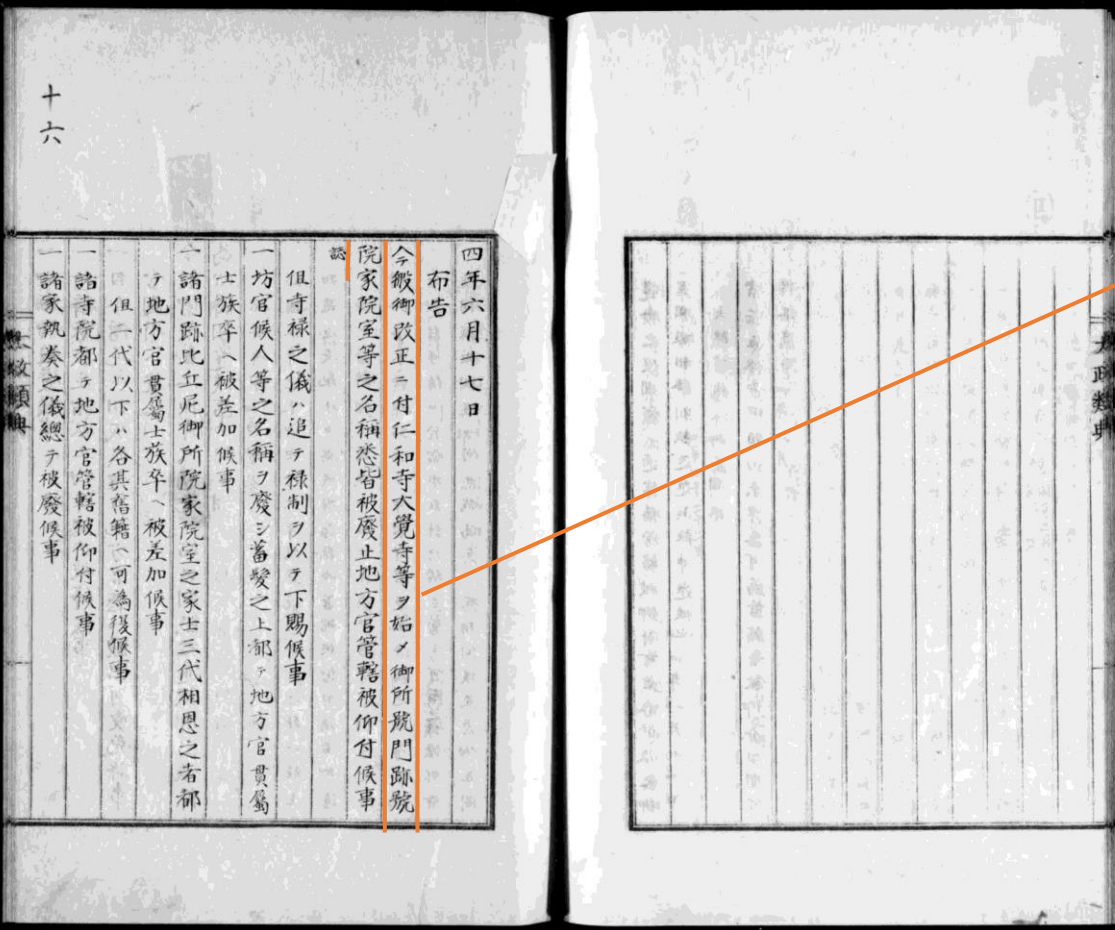 四年六月十七日
布告
今般御改正ニ付仁和寺大覺寺等ヲ始メ御所號門跡號
院家院室等之名稱悉皆被廢止地方官管轄被仰付候事
但寺祿之儀ハ追テ祿制ヲ以テ下賜候事
一坊官候人等之名稱ヲ廢シ蓄髮之上都テ地方官貫屬
士族卒ヘ被差加候事
一諸門跡比丘尼御所院家院室之家士三代相恩之者都
テ地方官貫屬士族卒ヘ被差加候事
但一代以下ハ各其舊籍ヘ可為復候事
一諸寺院都テ地方官管轄被仰付候事
一諸家執奏之儀總テ被廢候事
十六
政類典